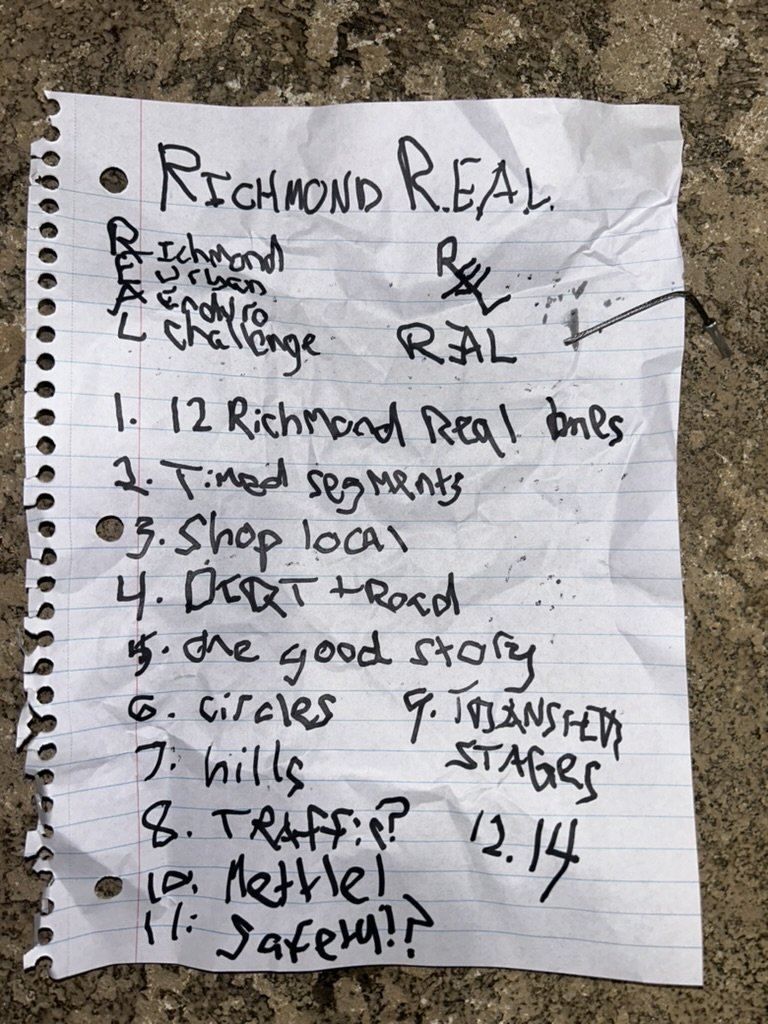 RICHMOND R.E.A.L.
R Richmond
E Urban
A Enduro
L Challenge
REAL
REAL
1. 12 Richmond Real
2. Timed segments
3. Shop local
4. DIRT + Road
5. one good story
6. circles
7. hills
8. TRAFFic?
9. TRANSFER
STAGES
10. Mettle!
11. Safety!?
12.14